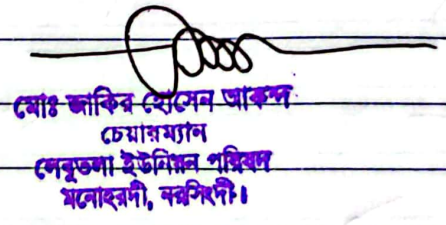 মোঃ জাকির হোসেন আকন্দ
চেয়ারম্যান
লেবুতলা ইউনিয়ন পরিষদ
মনোহরদী, নরসিংদী।